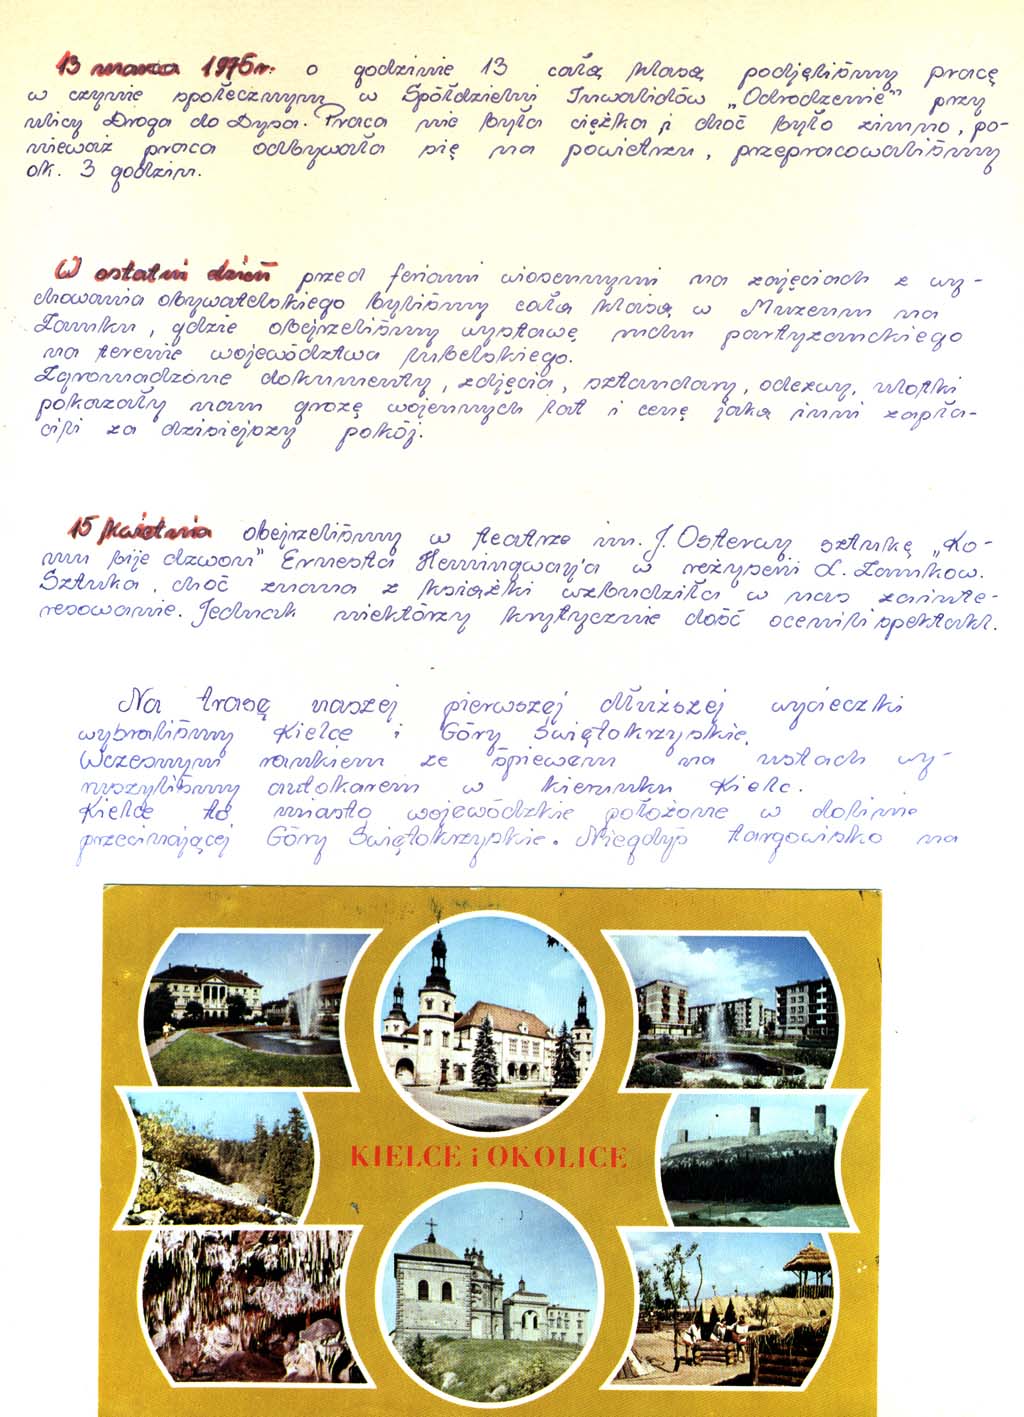 13 marca 1976r. o godzinie 13 całą klasą podjęliśmy pracę
w czynie społecznym w Spółdzielni Inwalidów „Odrodzenie" przy
ulicy Droga do Dysa. Praca nie była ciężka i choć było zimno, po-
nieważ praca odbywała się na powietrzu, przepracowaliśmy
ok. 3 godzin.
W ostatni dzień przed feriami wiosennymi na zajęciach z wy-
chowania obywatelskiego byliśmy całą klasą w Muzeum na
Zamku, gdzie obejrzeliśmy wystawę ruchu partyzanckiego
na terenie województwa lubelskiego.
Zgromadzone dokumenty, zdjęcia, sztandary, odezwy, ulotki
pokazały nam grozę wojennych lat i cenę jaką inni zapła-
cili za dzisiejszy pokój.
15 kwietnia obejrzeliśmy w teatrze im. J. Osterwy sztukę „Ko-
mu bije dzwon" Ernesta Hemingway'a w reżyserii L. Zamkow.
Sztuka, choć znana z książki wzbudziła w nas zainte-
resowanie. Jednak niektórzy krytycznie dość ocenili spektakl.
Na trasę naszej pierwszej dłuższej wycieczki
wybraliśmy Kielce i Góry Świętokrzyskie.
Wczesnym rankiem ze śpiewem na ustach wy-
ruszyliśmy autokarem w kierunku Kielc.
Kielce to miasto wojewódzkie położone w dolinie
przecinającej Góry Świętokrzyskie. Niegdyś targowisko na
KIELCE i OKOLICE